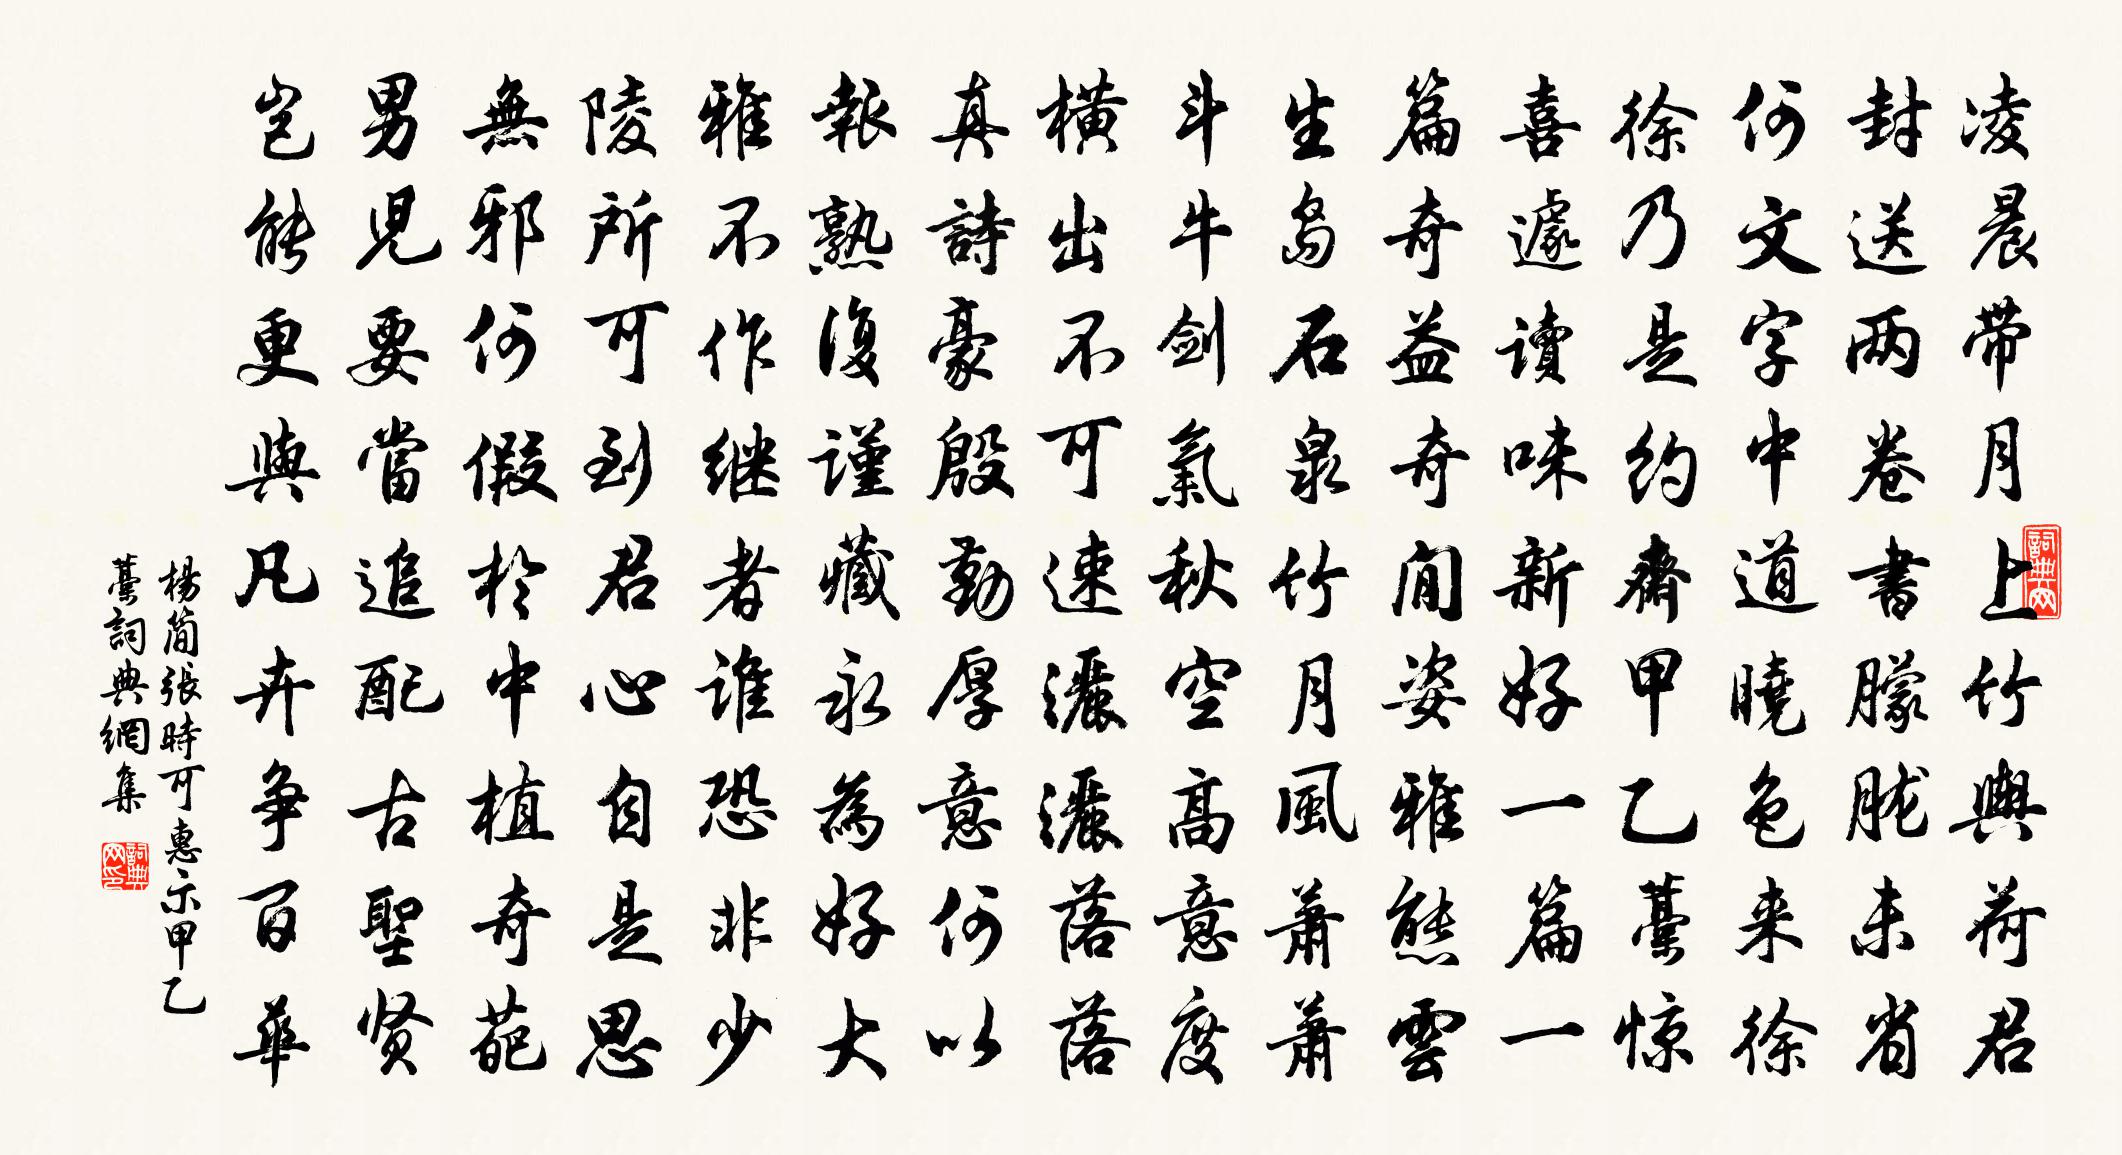 凌晨带月上竹輿荷君
封送两卷書朦胧未省
何文字中道曉色来徐
徐乃是约齋甲乙藁惊
喜遽读味新好一篇一
篇奇益奇閒姿雅熊雲
生岛石泉竹月風萧萧
斗牛剑氣秋空高意度
横出不可速灑灑落落
真詩豪殷勤厚意何以
報熟復謹藏永為好大
雅不作继者谁恐非少
陵所可到君心自是思
無邪何假於中植奇葩
男児要當追配古聖贤
岂能更與凡卉争百華
楊简張時可惠示甲乙
藁詞典網集
詞典网
詞典网印